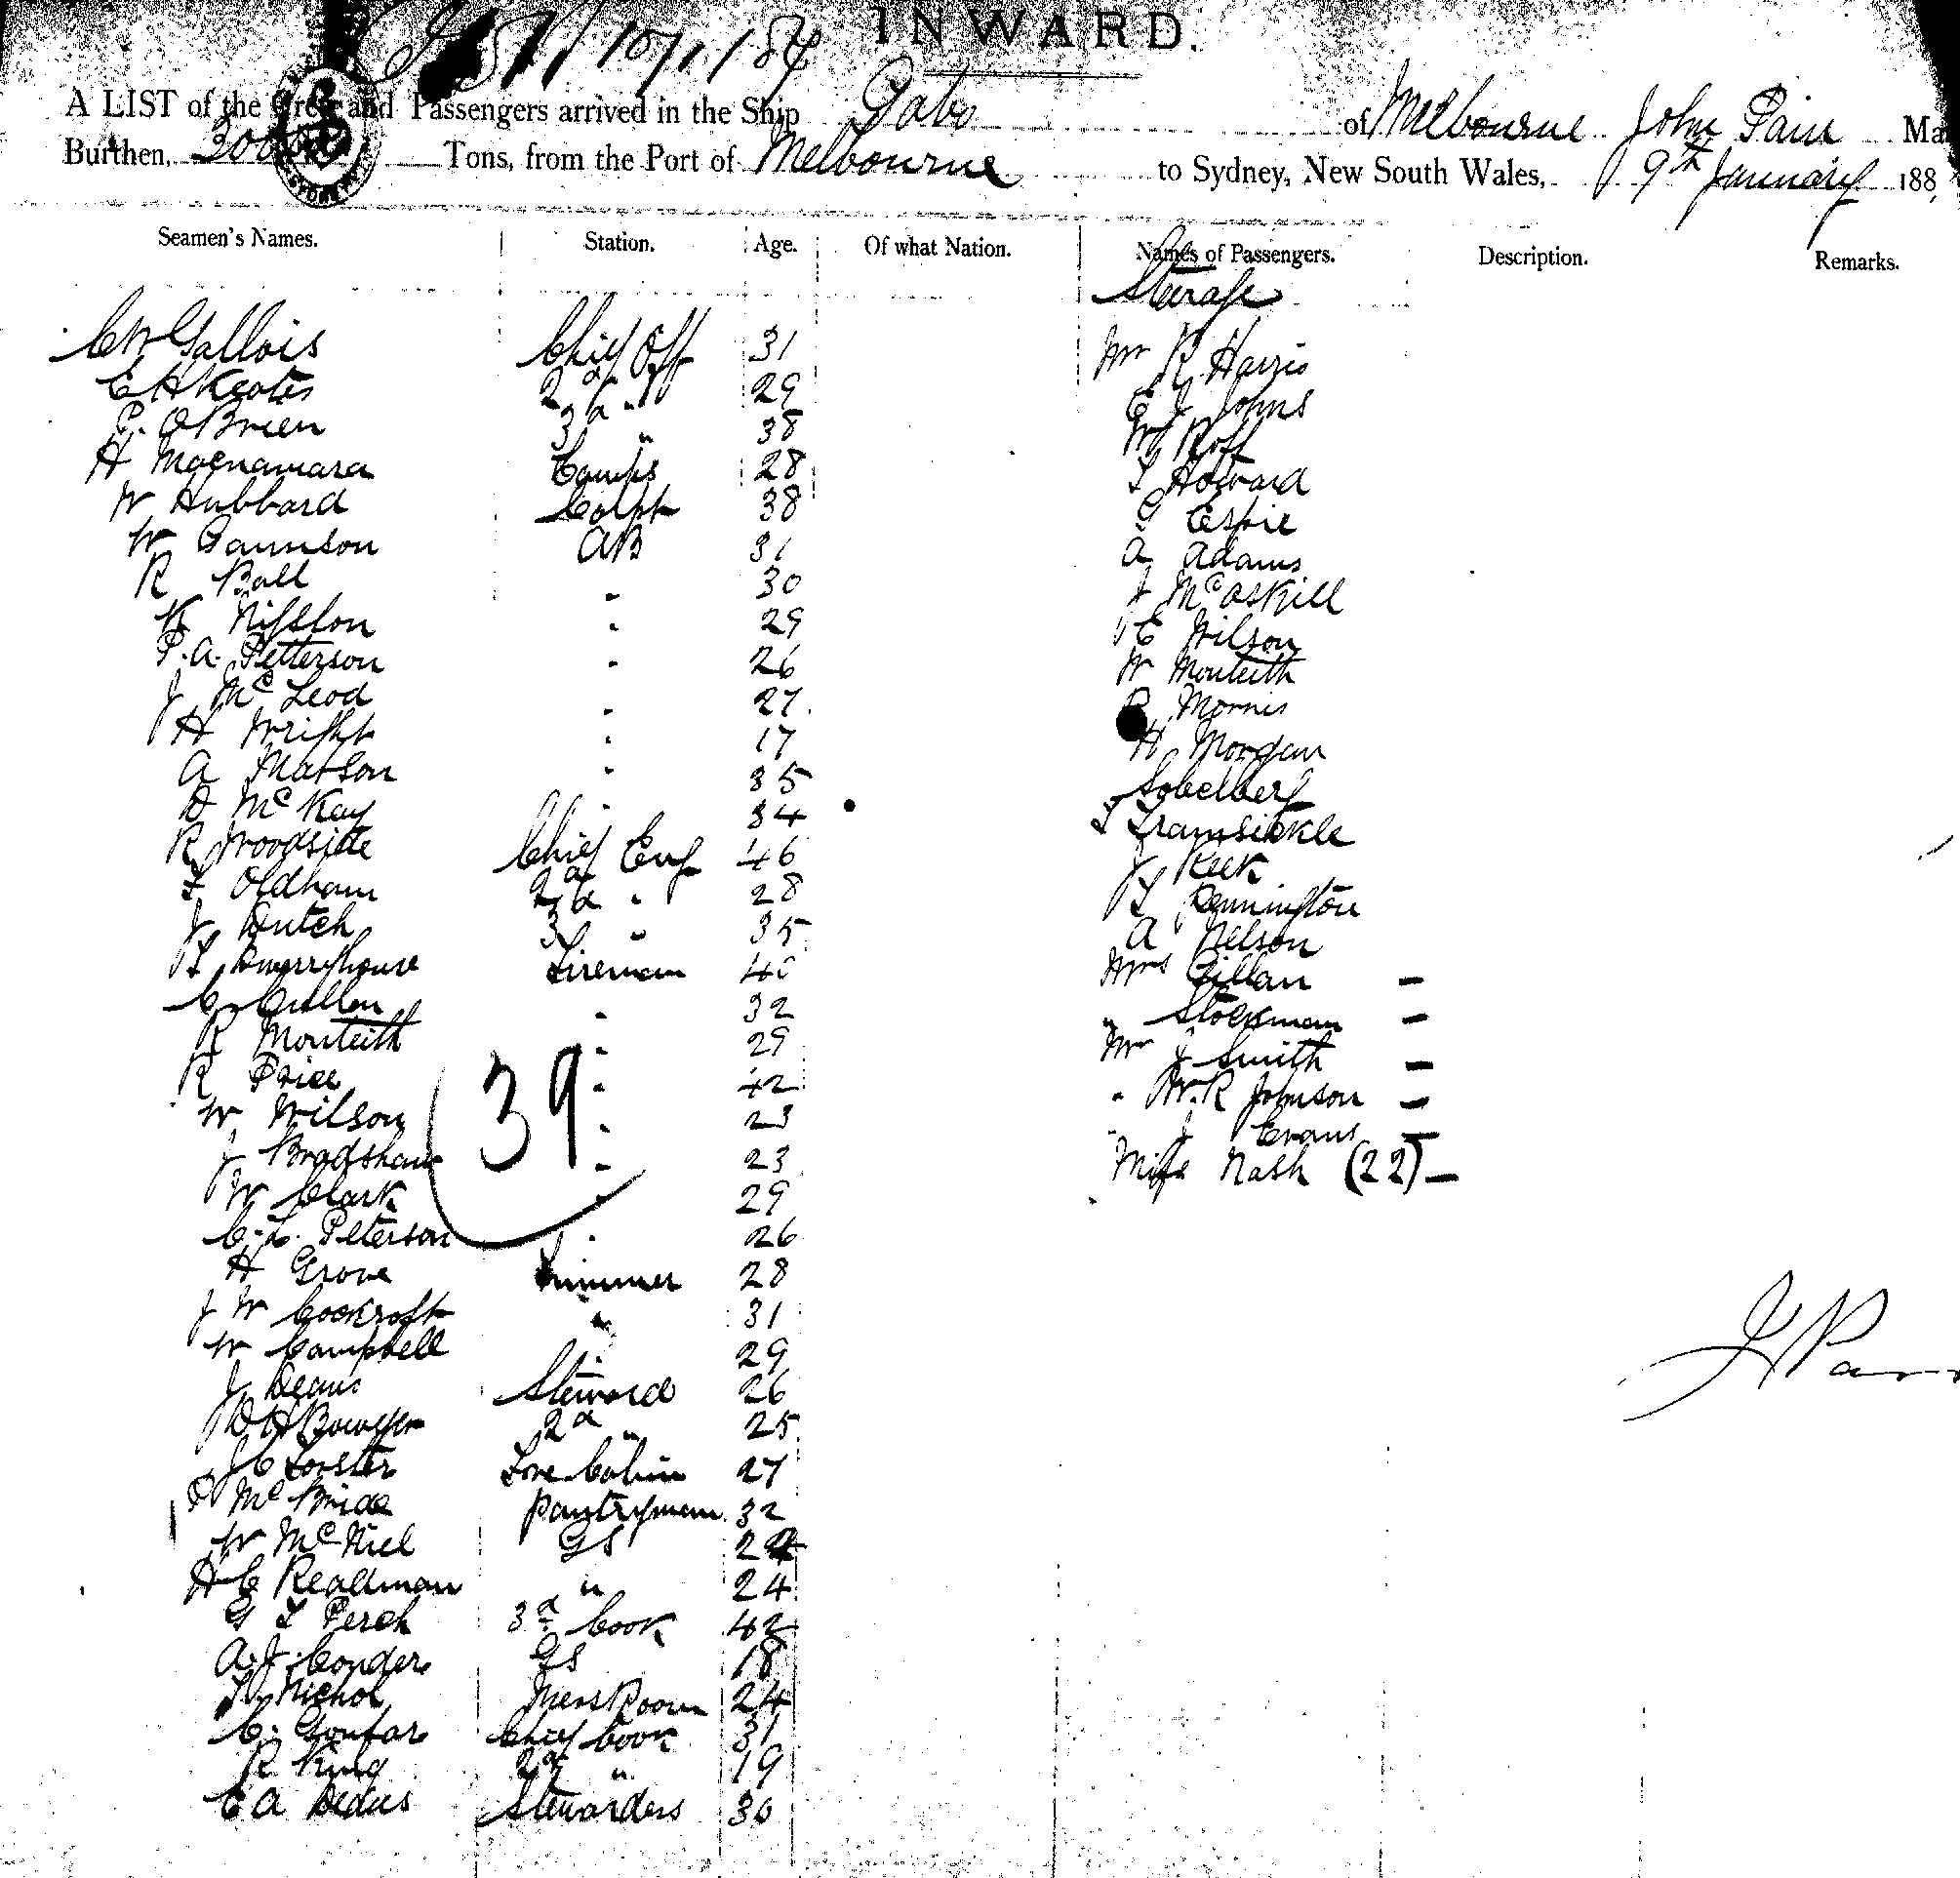 10/1/84
INWARD.
A LIST of the Crew and Passengers arrived in the Ship Gabo of Melbourne John Pain Ma
Burthen, Tons, from the Port of Melbourne to Sydney, New South Wales, 9th January 188
Seamen's Names. Station. Age. Of what Nation. Names of Passengers. Description. Remarks.
Steerage
C W Gallois Chief Off 31 Mr R Harris
E H Keates 2d " 29 E J Johns
P. O'Brien 3d " 38 W Roff
H Macnamara Lamps 28 T Howard
W Hubbard Carptr 38 G Espie
W Garrison AB 31 A Adams
R Ball " 30 J McCaskill
K Nisslon " 29 E Wilson
P. A. Petterson " 26 W Monteith
J McLeod " 27 R Morris
H Wright " 17 H Morgan
A Matson " 35 Sobelberg
D McKay " 34 T Tramsickle
R Woodside Chief Eng 46 J Keek
T Oldham 2d " 28 T Pennington
J Dutch 3d " 35 A Nelson
T Quarryhouse Fireman 40 Mrs Gillan —
C Cullen " 32 " Stockman —
R Monteith " 29 Mr J Smith —
R Price " 42 " W. R Johnson —
W Wilson " 23 " J Evans —
J Bradshaw " 23 Miss Nash (22) —
39
W Clark " 29
C. L. Peterson " 26
H Grove Trimmer 28
J W Cockroft " 31
W Campbell " 29
J Deans Steward 26
D H Bowyer 2d " 25
J C Forster Fore Cabin 27
P McBride Pantryman 32
W McNiel GS 24
H C Readman " 24
G T Perch 3d Cook 42
A. J. Conder GS 18
T Nichol Mess Room 24
C. Goufar Chief Cook 31
R King 2d " 19
E A Dedus Stewardess 30
J Pain